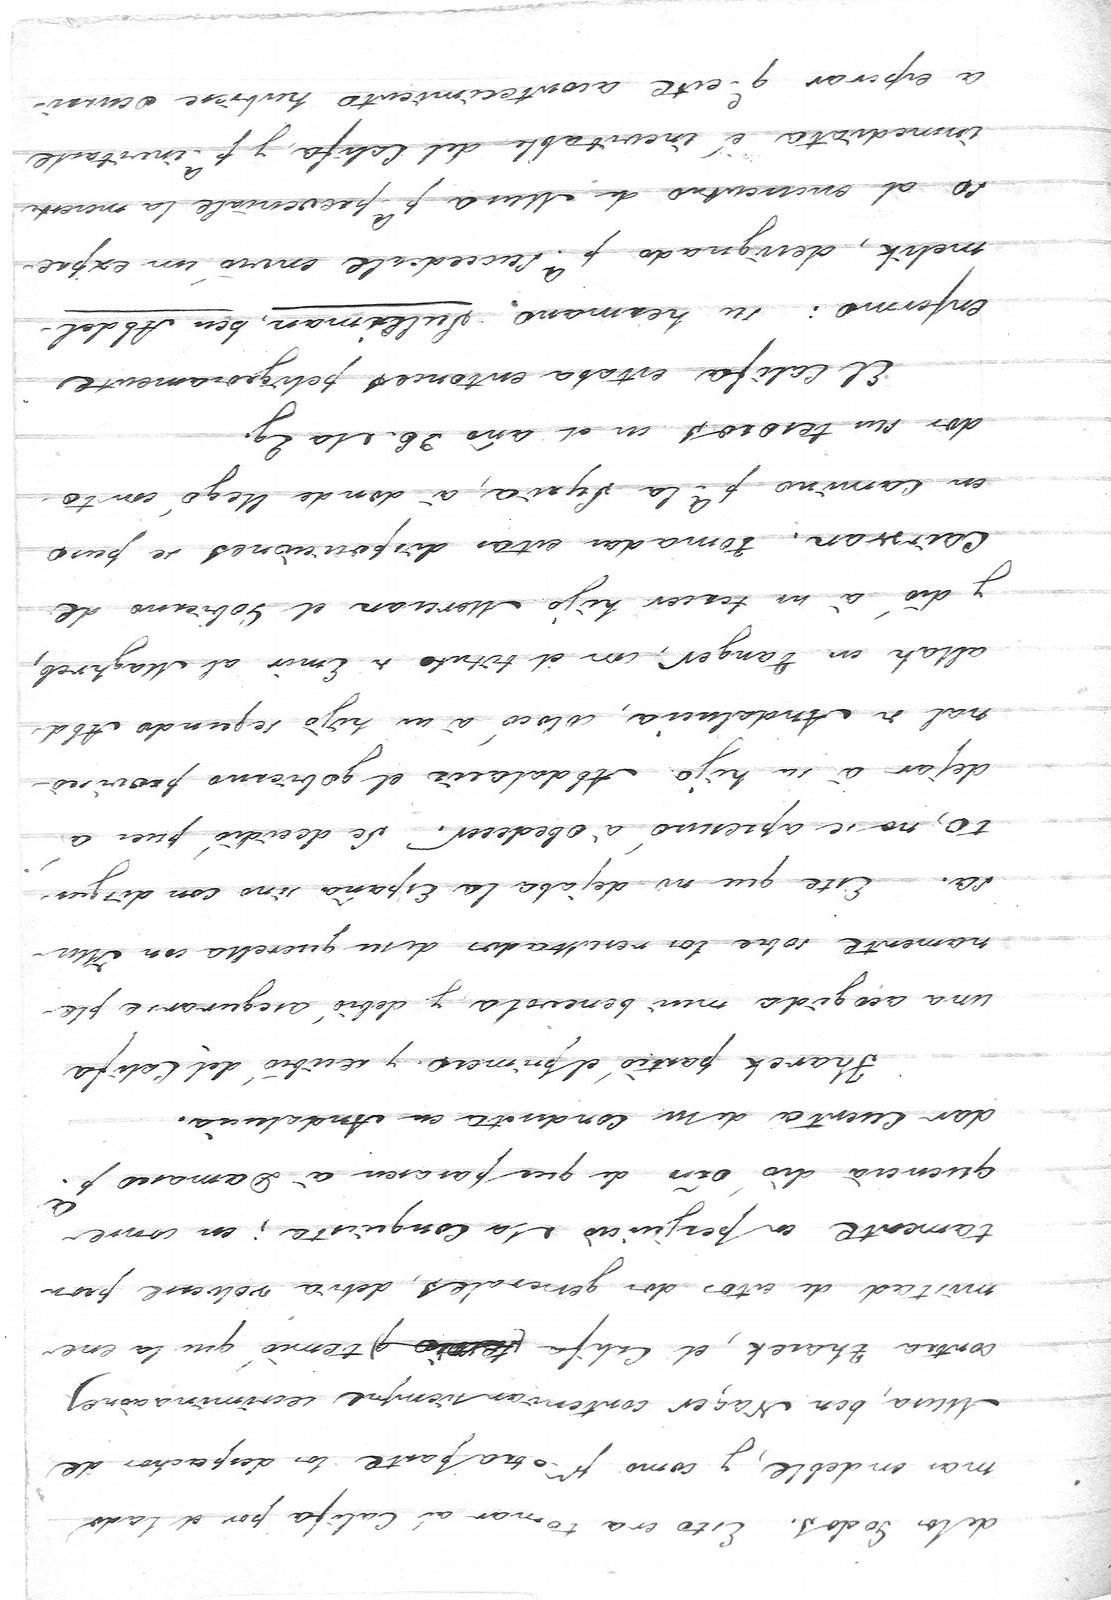 de los Godos. Esto era tomar al Califa por el lado
mas endeble, y como pr otra parte los despachos de
Musa, ben Naçer contenian siempre recriminaciones
contra Tharek, el Califa temió que la ene-
mistad de estos dos generales, debia volverse pron-
tamente en perjuicio de la Conquista; en conse-
quencia dió orn de que pasasen á Damasco pa
dar cuenta de su conducta en Andalucia.
Tharek partió el primero y recibió del Califa
una acogida mui benevola y debió asegurarse ple-
namente sobre los resultados de su querella con Mu-
sa. Este que no dejaba la España sino con disgus-
to, no se apresuró á obedecer. Se decidió pues á
dejar á su hijo Abdalaziz el gobierno provicio-
nal de Andalucia, colocó á su hijo segundo Abd-
allah en Tanger, con el titulo de Emir al Maghreb,
y dió á su tercer hijo Meruan el Gobierno de
Cairwan. Tomadas estas disposiciones se puso
en camino pa la Syria, á donde llegó con to-
dos sus tesoros en el año 36. de la Eg.
El Califa estaba entonces peligrosamente
enfermo: su hermano, Suleiman, ben Abdel-
melik, designado pa succederle envió un expre-
so al encuentro de Musa pa prevenirle la muerte
inmediata é inevitable del Califa, y pa invitarle
a esperar qe este acontecimiento hubiese ocurri-